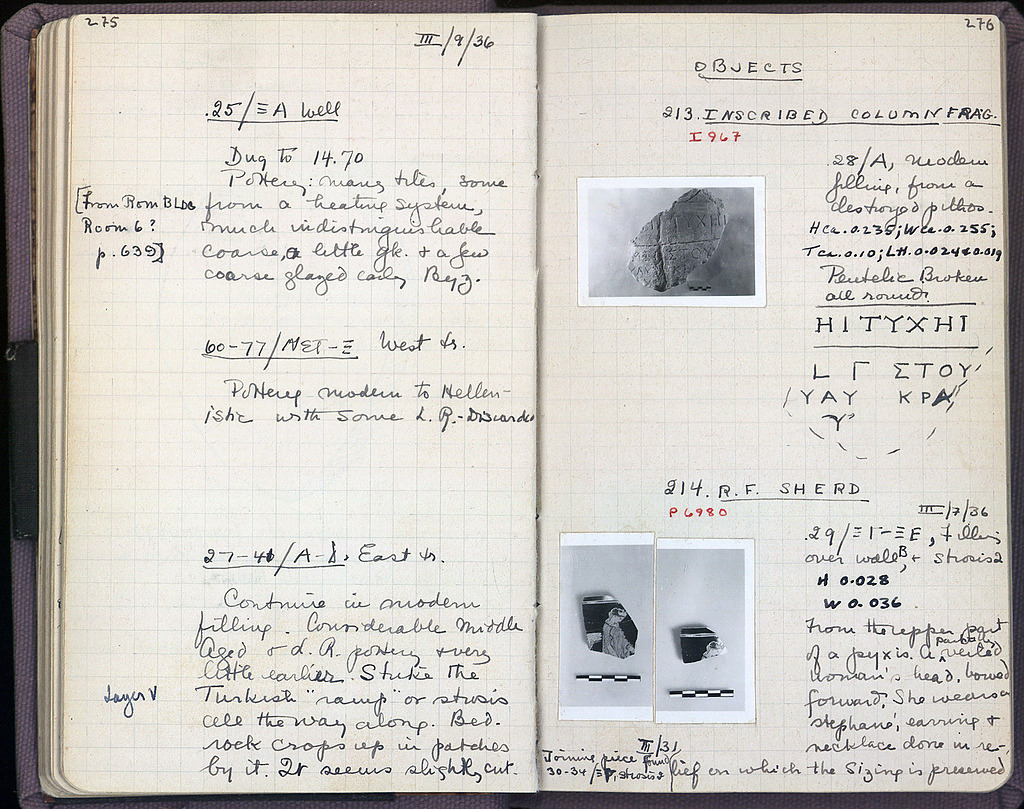 275
III/9/36
25/ΞA Well
Dug to 14.70
Pottery: many tiles, some
from a heating system,
much indistinguishable
coarse, a little gk. & a few
coarse glazed early Byz.
[From Rom BLDG
Room 6?
p. 639]
60-77/ΝΣΤ-Ξ West tr.
Pottery modern to Hellen-
istic with some L.R. - Discarded
27-41/A-Δ. East tr.
Continue in modern
filling. Considerable Middle
Aged & L.R. pottery & very
little earlier. Strike the
Turkish "ramp" or strosis
all the way along. Bed-
rock crops up in patches
by it. It seems slightly cut.
Layer V
276
OBJECTS
213. INSCRIBED COLUMN FRAG.
I 967
28/A, modern
filling, from a
destroyed pithos.
H ca. 0.235; W ca. 0.255;
T ca. 0.10; LH. 0.024 & 0.019
Pentelic. Broken
all round.
ΗΙ ΤΥΧΗΙ
L Γ ΣΤΟΥ
ΥΑΥ ΚΡΑ
Υ
214. R.F. SHERD
P 6980
III/7/36
29/ΞΓ-ΞΕ, Filling
over wall B, & strosis 2
H 0.028
W 0.036
From the upper part
of a pyxis. A partially veiled
woman's head, bowed
forward. She wears a
stephane, earring &
necklace done in re-
lief on which the sizing is preserved
III/31
Joining piece found
30-34/ΞΓ, strosis 2